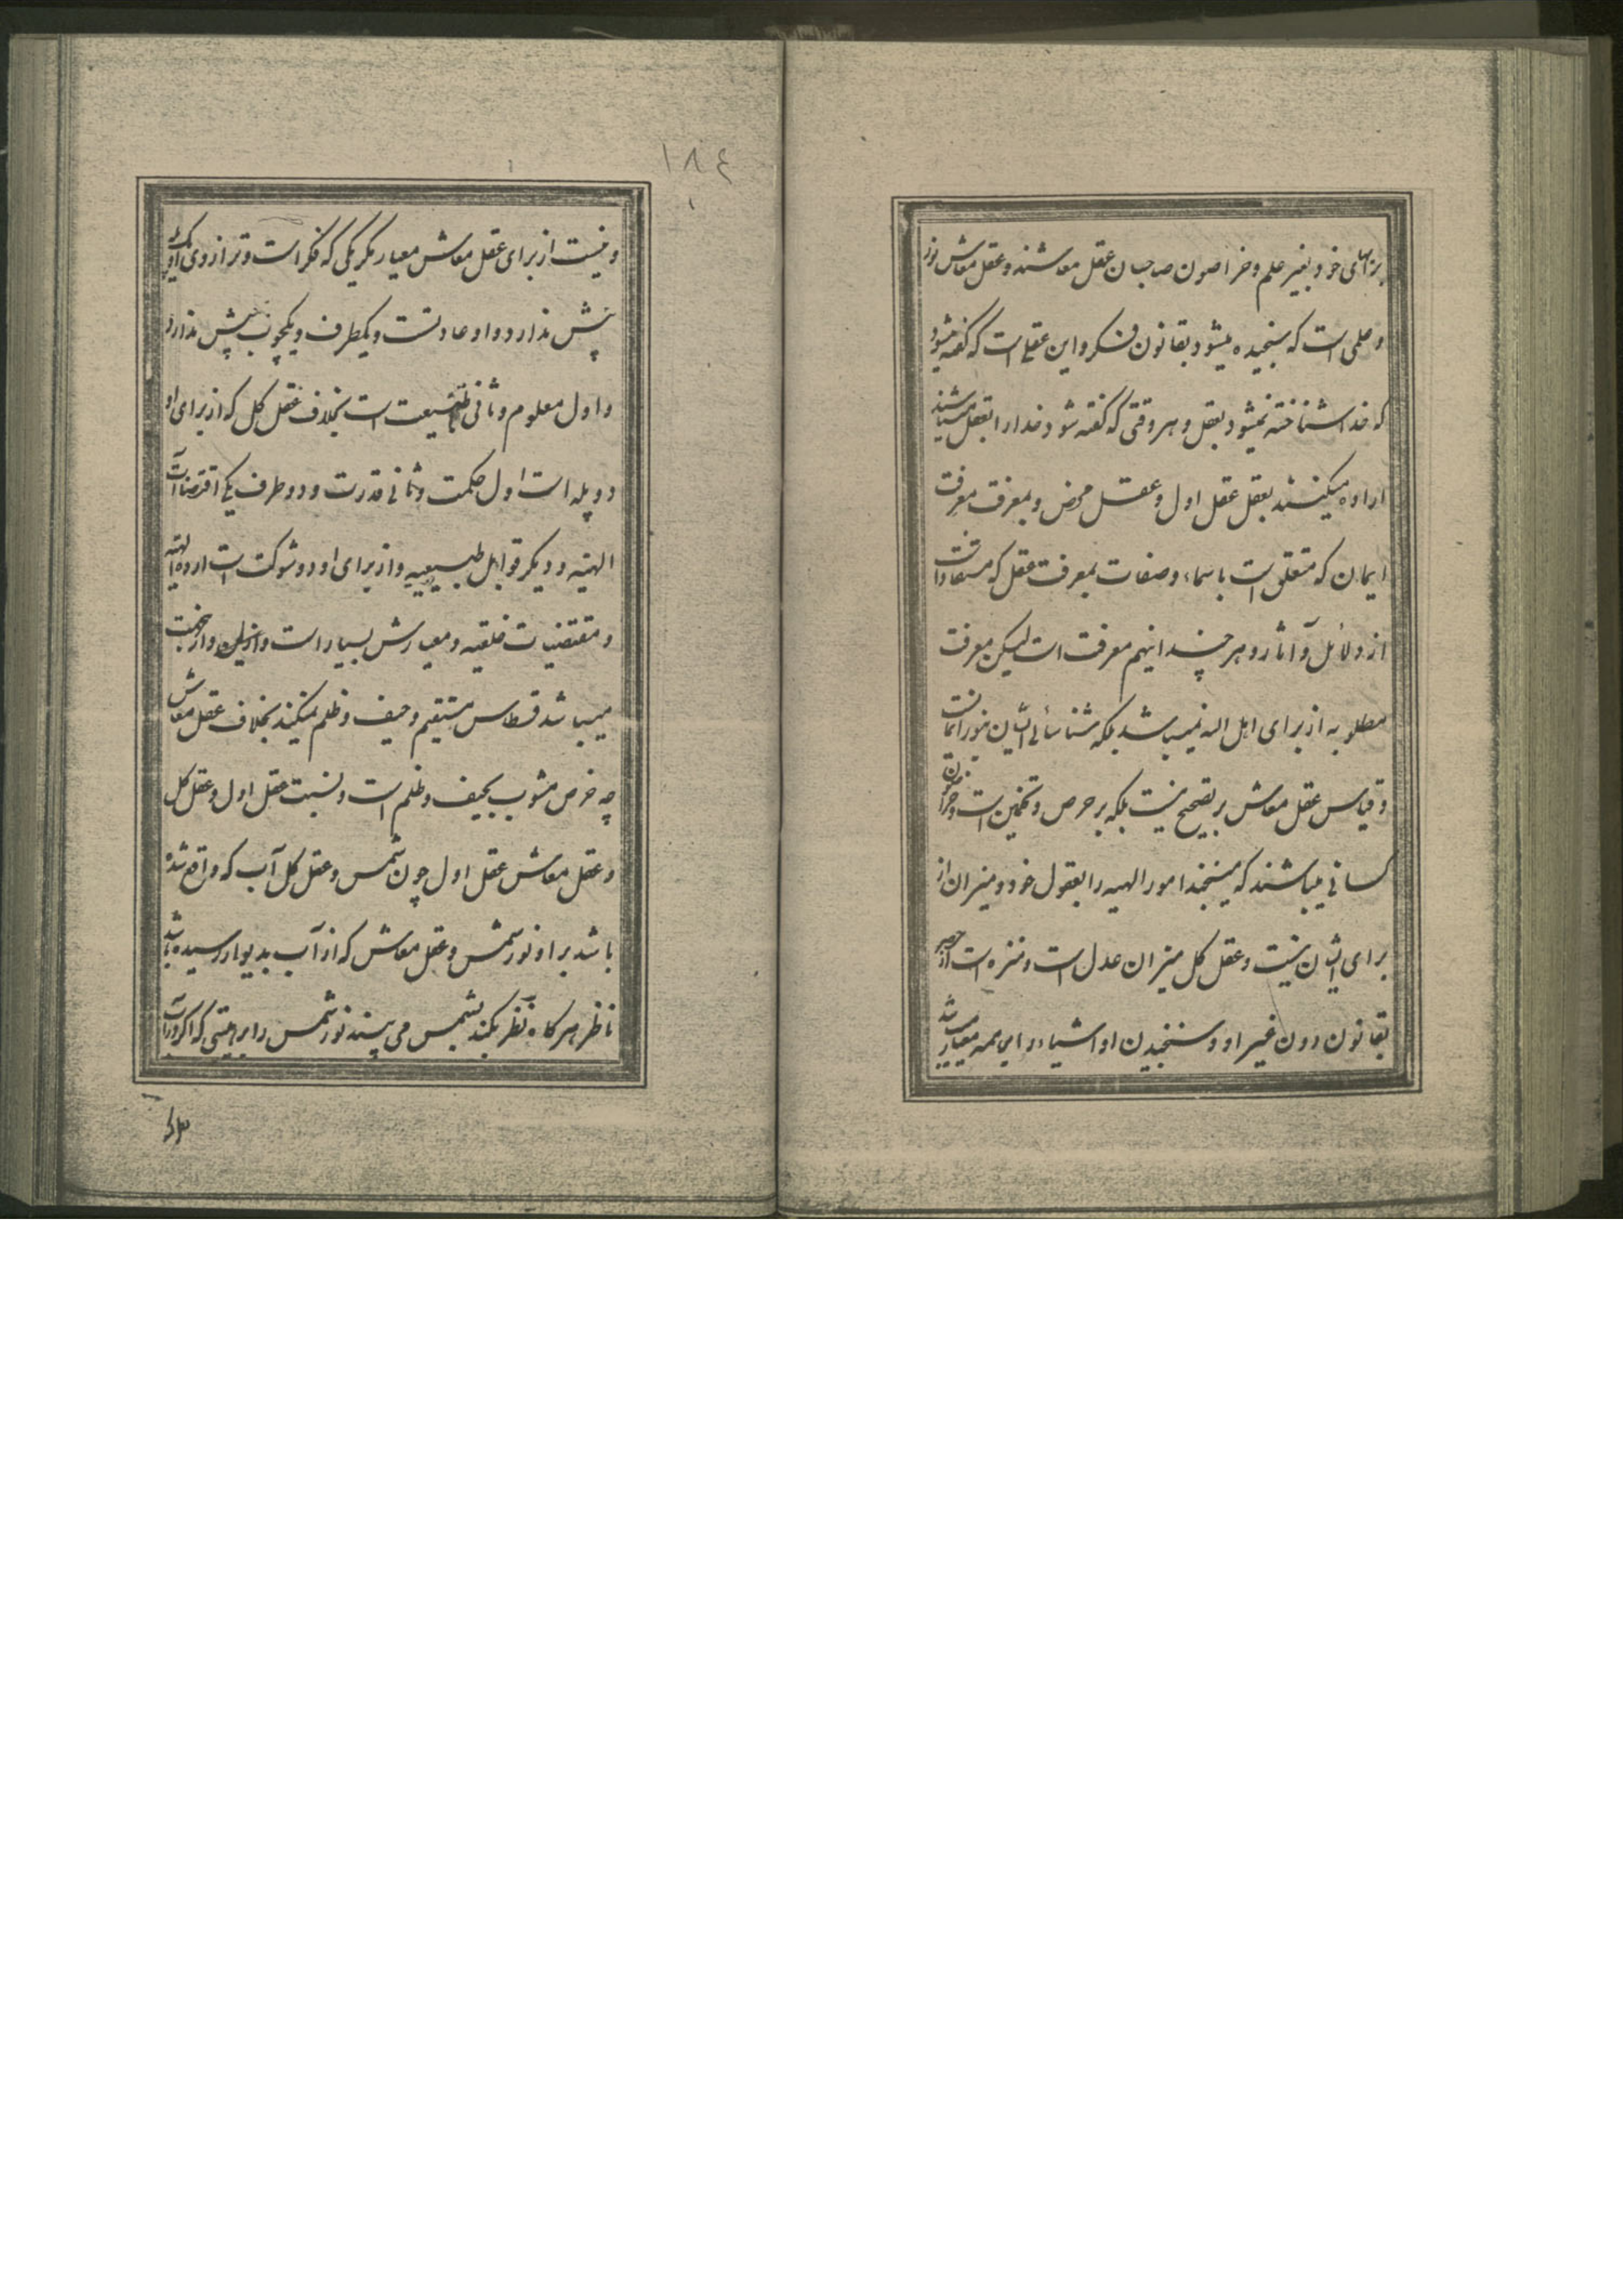 برایهای خود بغیر علم و خراصون صاحبان عقل معاشند و عقل معاش نور
و علمی است که سنجیده میشود بقانون فکر و این عقلی است که گفته میشود
که خدا شناخته نمیشود بعقل و هر وقتی که گفته شود خدا را بعقل میشناسند
اراده میکنند بعقل عقل اول و عقل محض و بمعرفت معرفت
ایمان که متعلق است باسماء و صفات بمعرفت عقل که مستفاد است
از دلائل و آثار و هر چند اینهم معرفت است لیکن معرفت
مطلوبه از برای اهل الله نمیباشد بلکه شناسائی ایشان بنور ایمانست
و قیاس عقل معاش بر تصحیح نیست بلکه بر حرص و تخمین است و خراصون
کسانی میباشند که میسنجند امور الهیه را بعقول خود و میزان از
برای ایشان نیست و عقل کل میزان عدل است و منزه است از حصر
بقانون دون غیر او و سنجیدن او اشیاء را بهمه معیار میباشد
۱۸۴
و نیست از برای عقل معاش معیار مگر یکی که فکر است و ترازوی او یک کفه
بیش ندارد و او عادتست و یکطرف و یکچوب بیش ندارد
و اول معلوم و ثانی طبیعت است بخلاف عقل کل که از برای او
دو پله است اول حکمت و ثانی قدرت و دو طرف یکی اقتضاآت
الهیه و دیگر قوابل طبیعیه و از برای او دو شوکت است اراده الهیه
و مقتضیات خلقیه و معیارش بسیار است و از این جهت
میباشد قسطاس مستقیم و حیف و ظلم نمیکند بخلاف عقل معاش
چه خرص مشوب بحیف و ظلم است و نسبت عقل اول و عقل کل
و عقل معاش عقل اول چون شمس و عقل کل آب که واقع شده
باشد بر او نور شمس و عقل معاش که از آب بدیوار رسیده باشد
ناظر هر گاه نظر بکند بشمس می بیند نور شمس را بر هیئتی که اگر در آب